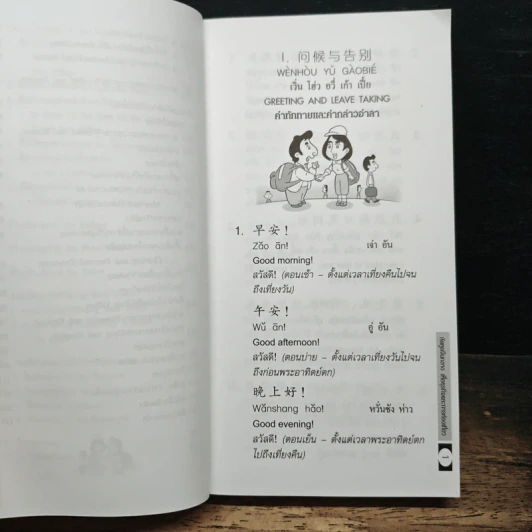 I. 问候与告别
WÈNHÒU YǓ GÀOBIÉ
เวิ่น โฮ่ว ยวี่ เก้า เปี๋ย
GREETING AND LEAVE TAKING
คำทักทายและคำกล่าวอำลา
1. 早安!
Zǎo ān! เจ่า อัน
Good morning!
สวัสดี! (ตอนเช้า – ตั้งแต่เวลาเที่ยงคืนไปจน
ถึงเที่ยงวัน)
午安!
Wǔ ān! อู่ อัน
Good afternoon!
สวัสดี! (ตอนบ่าย – ตั้งแต่เวลาเที่ยงวันไปจน
ถึงก่อนพระอาทิตย์ตก)
晚上好!
Wǎnshang hǎo! หวั่นซัง ห่าว
Good evening!
สวัสดี! (ตอนเย็น – ตั้งแต่เวลาพระอาทิตย์ตก
ไปถึงเที่ยงคืน)
1